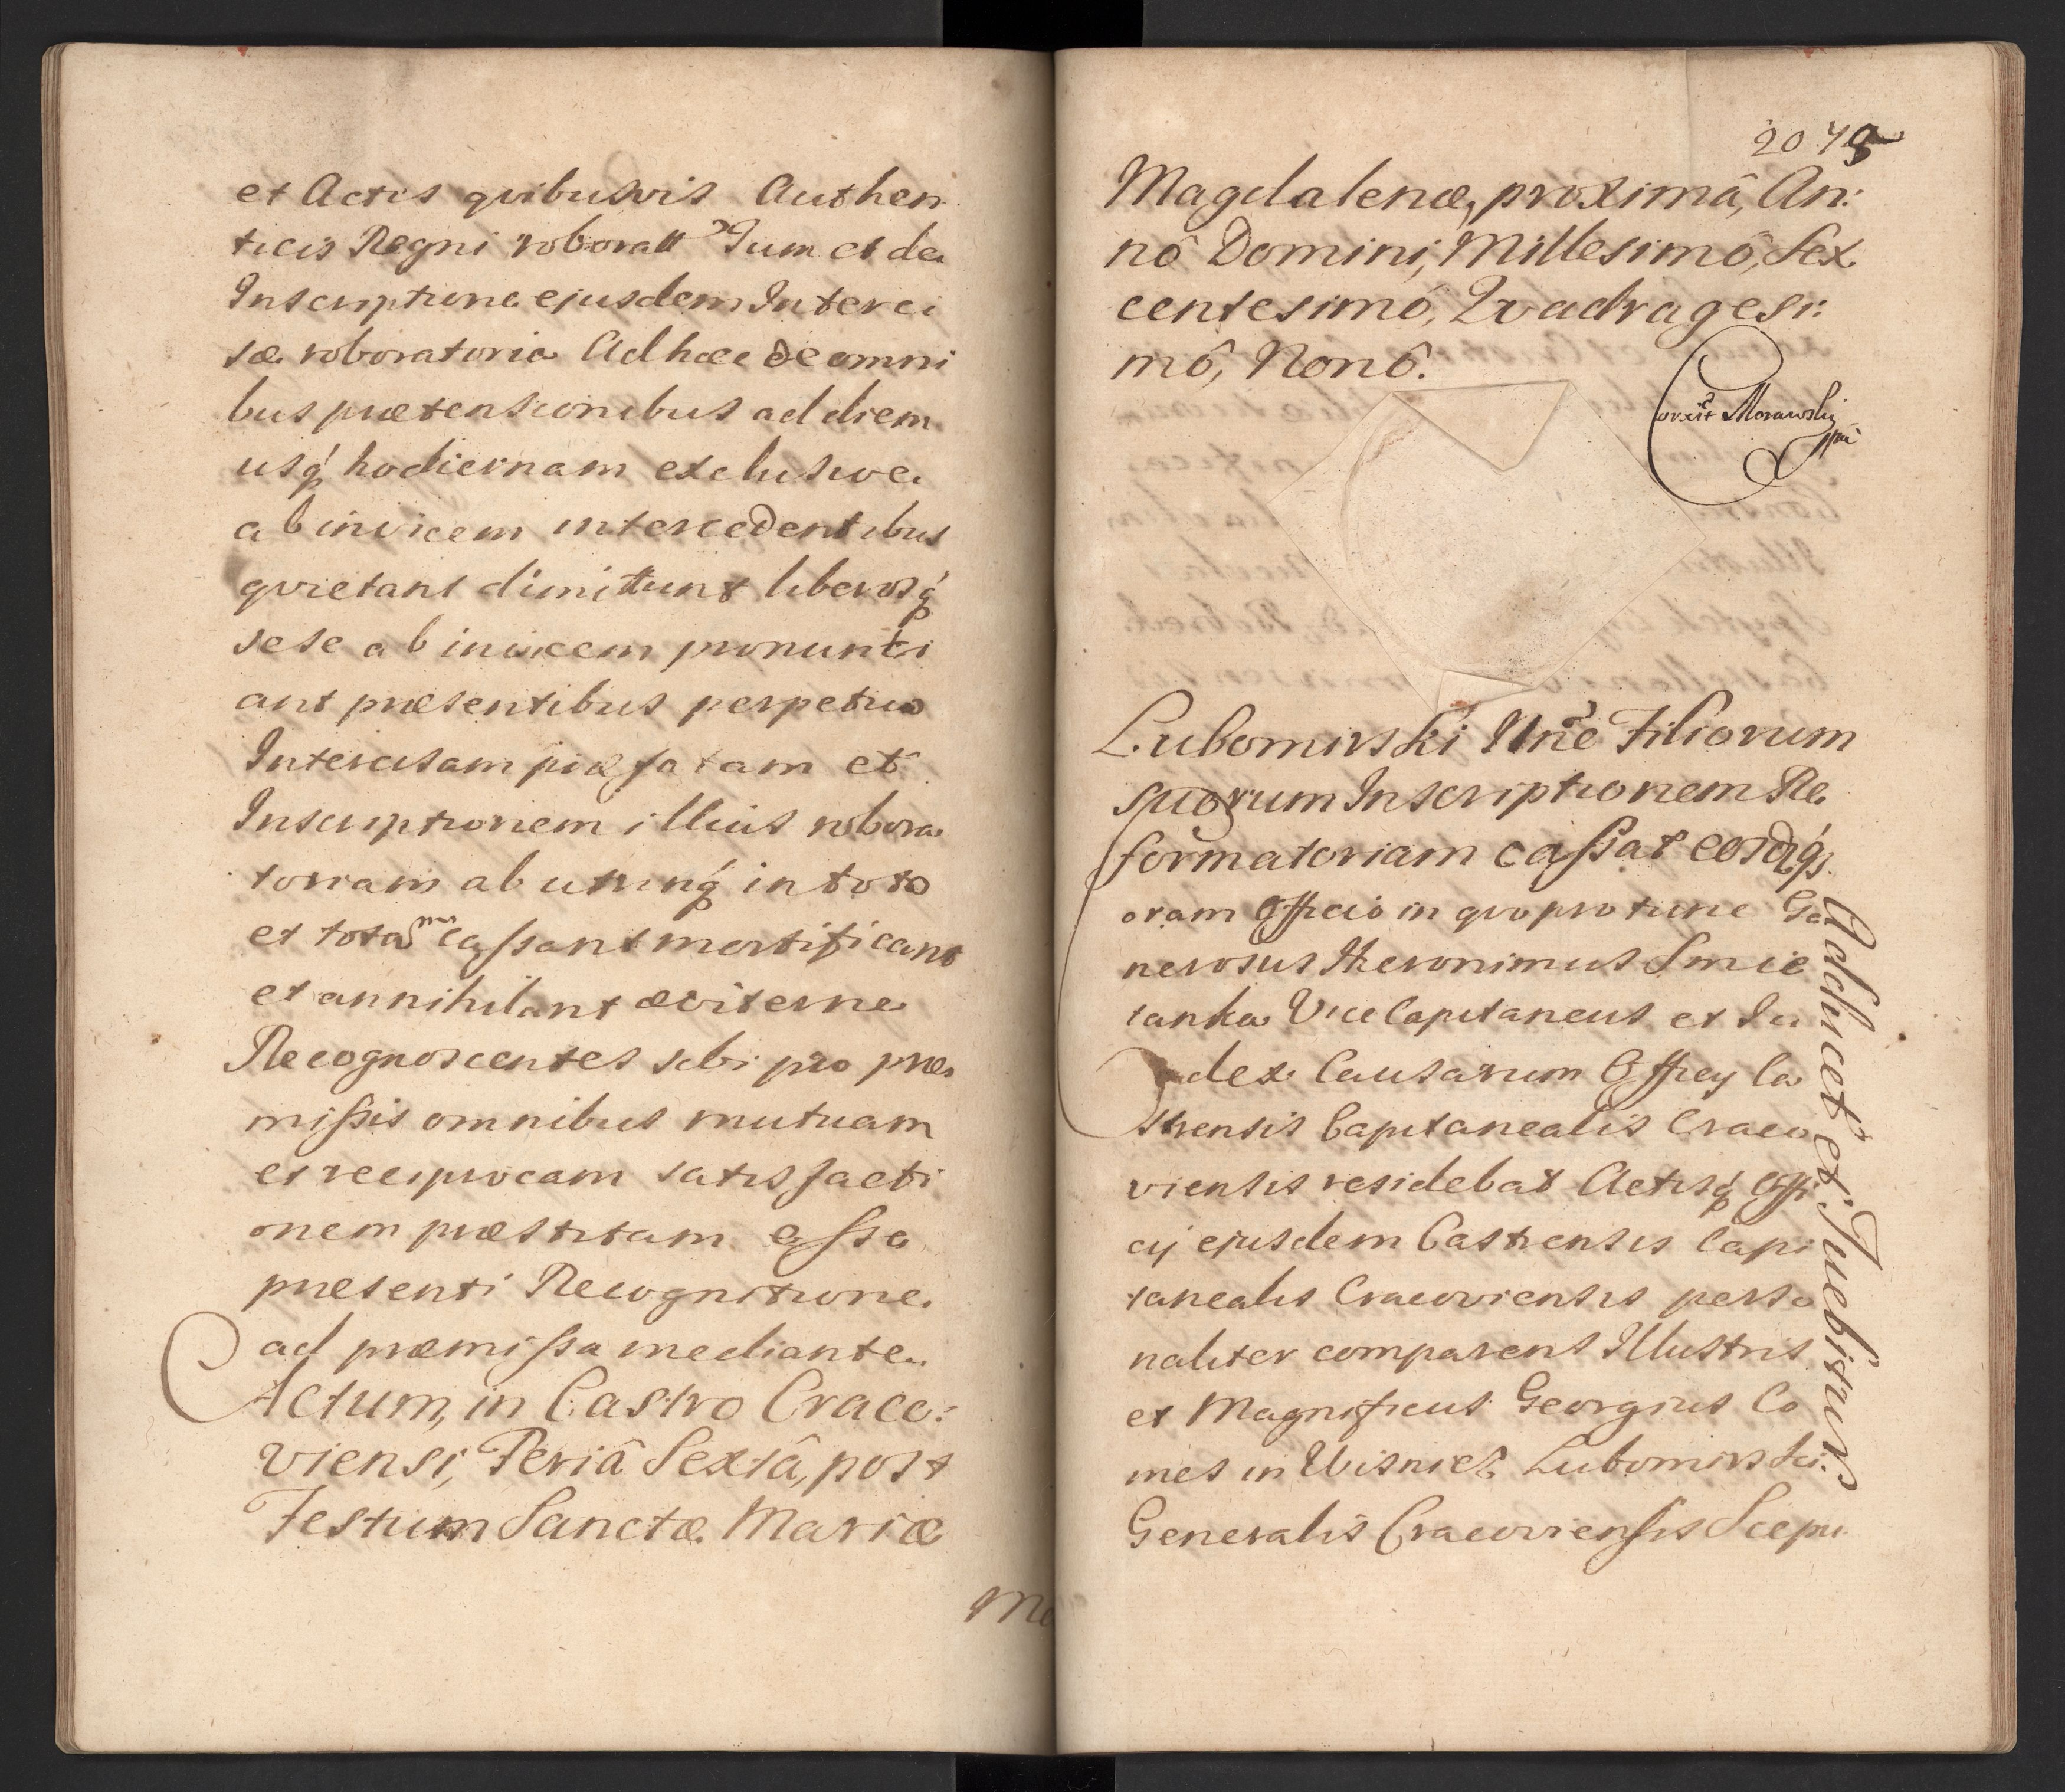 et Actis qvibusvis Authen
ticis Regni roboratt Tum et de
Inscriptione ejusdem Interci
sæ roboratoria Ad hæc de omni
bus prætensionibus ad diem
usq́ hodiernam exclusive
ab invicem intercedentibus
qvietant dimittunt liberosq́
sese ab invicem pronunti
ant præsentibus perpetuo
Intercisam præfatam et
Inscriptionem illius robora
toriam ab utrinq́ in toto
et tota cassant mortificant
et annihilant æviterne
Recognoscentes sibi pro præ
missis omnibus mutuam
et reciprocam satisfacti
onem præstitam esse
præsenti Recognitione
ad præmissa mediante
Actum, in Castro Craco:
viensi, Feriâ Sextâ, post
Festum Sanctæ Mariæ
Ma
207
Magdalenæ, proximâ, An:
nô Domini, Millesimô, Sex
centesimô, Qvadragesi:
mô, Nonô.
Corexit Morawski
mpã
Lubomirski Nnẽ Filiorum
suorum Inscriptionem Re
formatoriam cassat eosdq́
oram Officio in qvo pro tunc Ge
nerosus Hieronimus Smie
tanka Vice Capitaneus et Ju
dex Causarum Officy Ca
strensis Capitanealis Craco
viensis residebat Actisq́ Offi
cij ejusdem Castrensis Capi
tanealis Cracoviensis perso
naliter comparens Illustris
et Magnificus Georgius Co
mes in Wisnicz Lubomirski
Generalis Cracoviensis Scepu
Adducet et Inebitur